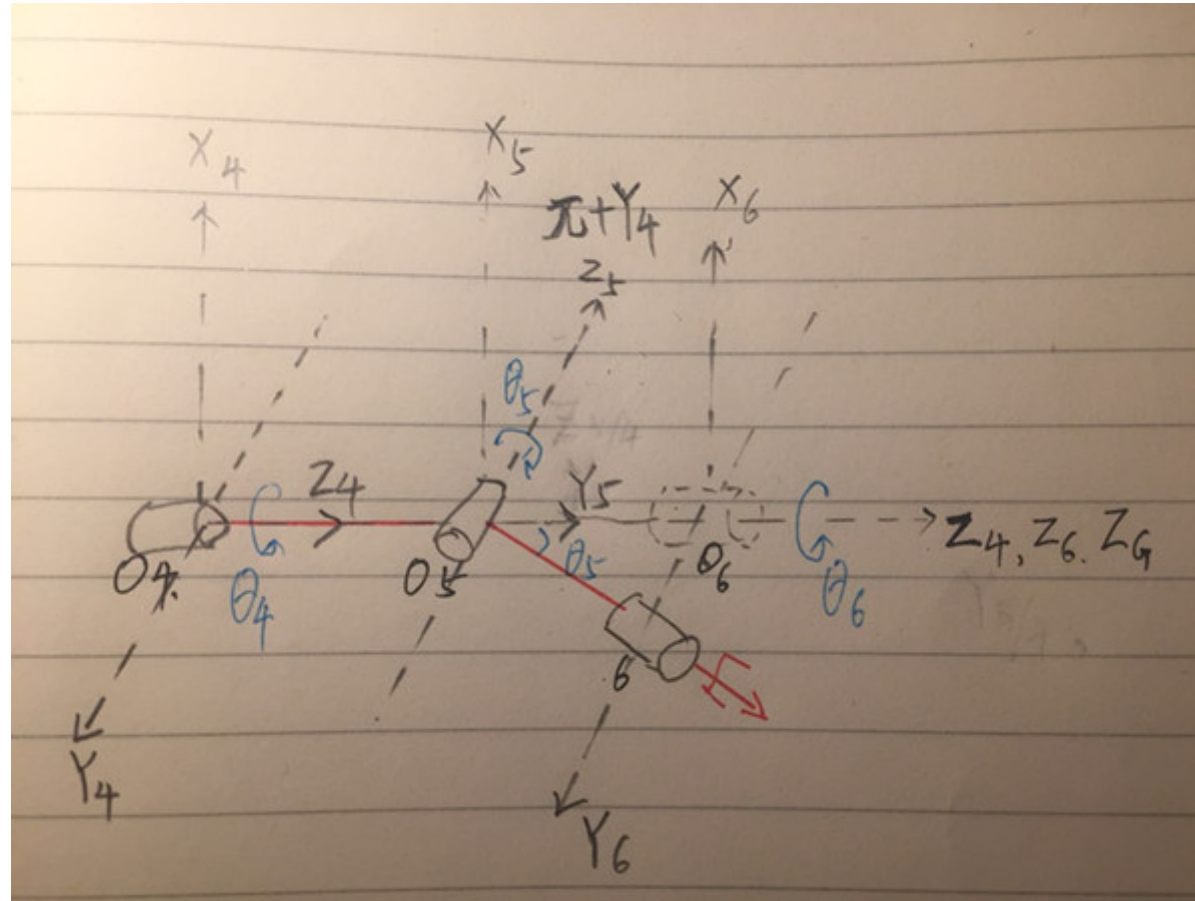 X4
X5
π+Y4
X6
Z5
θ5
Z4
Y5
Z4, Z6. ZG
O4
θ4
O5
θ5
O6
θ6
6
Y4
Y6